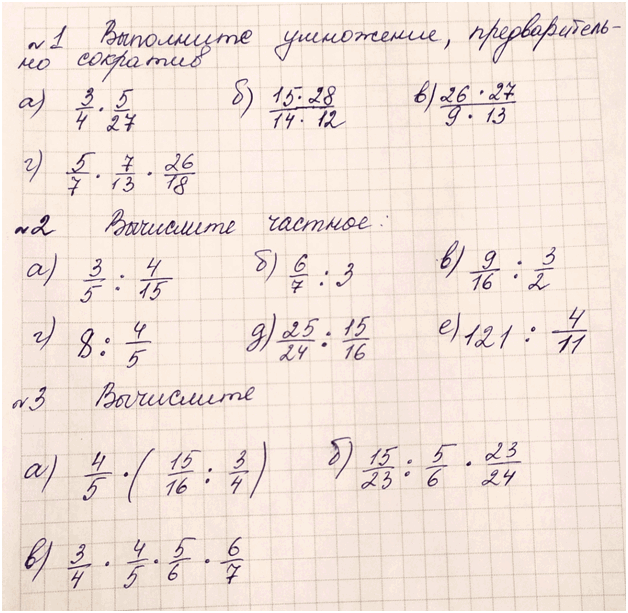 №1 Выполните умножение, предваритель-
но сократив
а) 3/4 · 5/27 б) 15·28/14·12 в) 26·27/9·13
г) 5/7 · 7/13 · 26/18
№2 Вычислите частное:
а) 3/5 : 4/15 б) 6/7 : 3 в) 9/16 : 3/2
г) 8 : 4/5 д) 25/24 : 15/16 е) 121 : 4/11
№3 Вычислите
а) 4/5 · (15/16 : 3/4) б) 15/23 : 5/6 · 23/24
в) 3/4 · 4/5 · 5/6 · 6/7